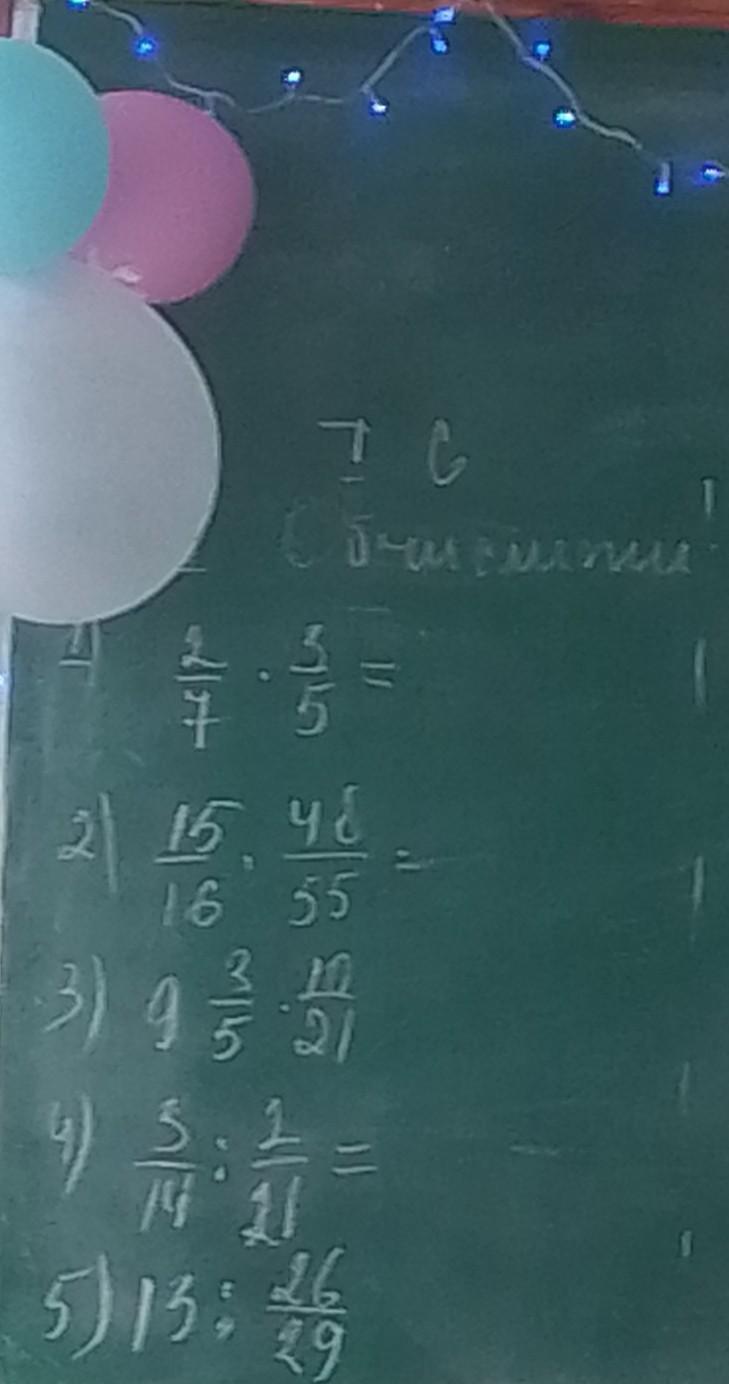 I С
Обчислити
1) 2/7 · 3/5 =
2) 15/16 · 48/55 =
3) 9 3/5 · 10/21
4) 5/14 : 2/21 =
5) 13 : 26/29